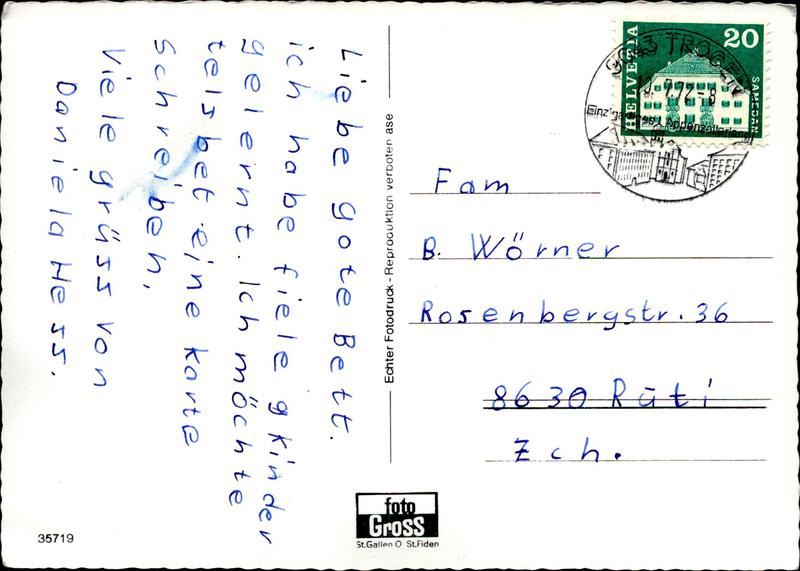 Liebe gote Bett.
ich habe fiele gkinder
gelernt. Ich möchte
telsbet eine karte
schreiben,
Viele grüss von
Daniela Hess.
Echter Fotodruck - Reproduktion verboten ase
HELVETIA
20
SAMEDAN
9043 TROGEN
7.72-8
Fam
B. Wörner
Rosenbergstr. 36
8630 Rüti
Zch.
foto
Gross
St.Gallen O St.Fiden
35719